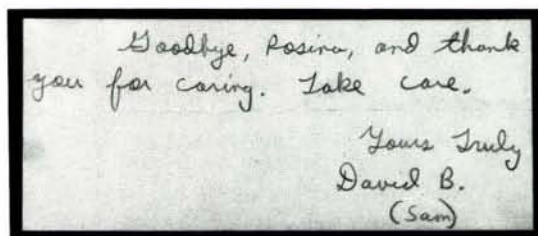 Goodbye, Rosina, and thank
you for caring. Take care.
Yours Truly
David B.
(Sam)